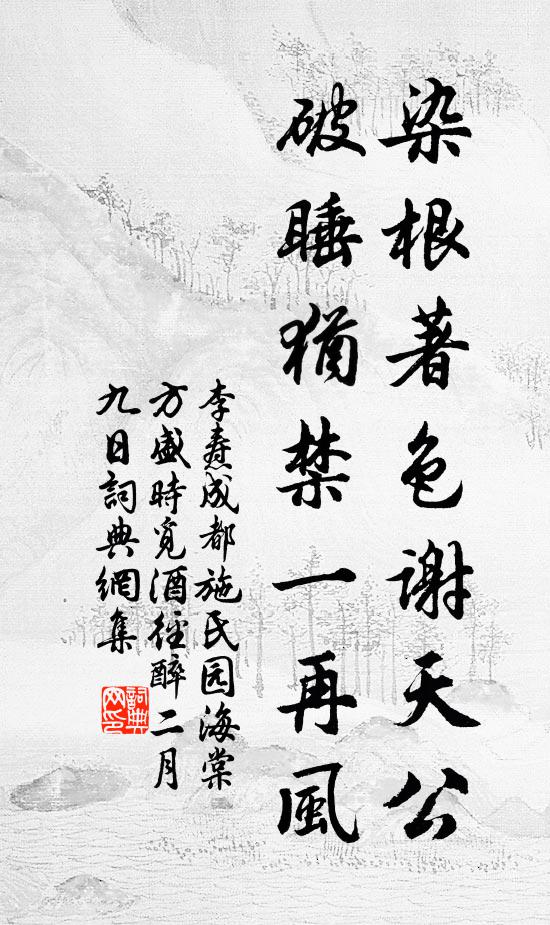 染根著色谢天公
破睡猶禁一再風
李焘成都施氏园海棠
方盛時覓酒径醉二月
九日詞典網集
詞典网印